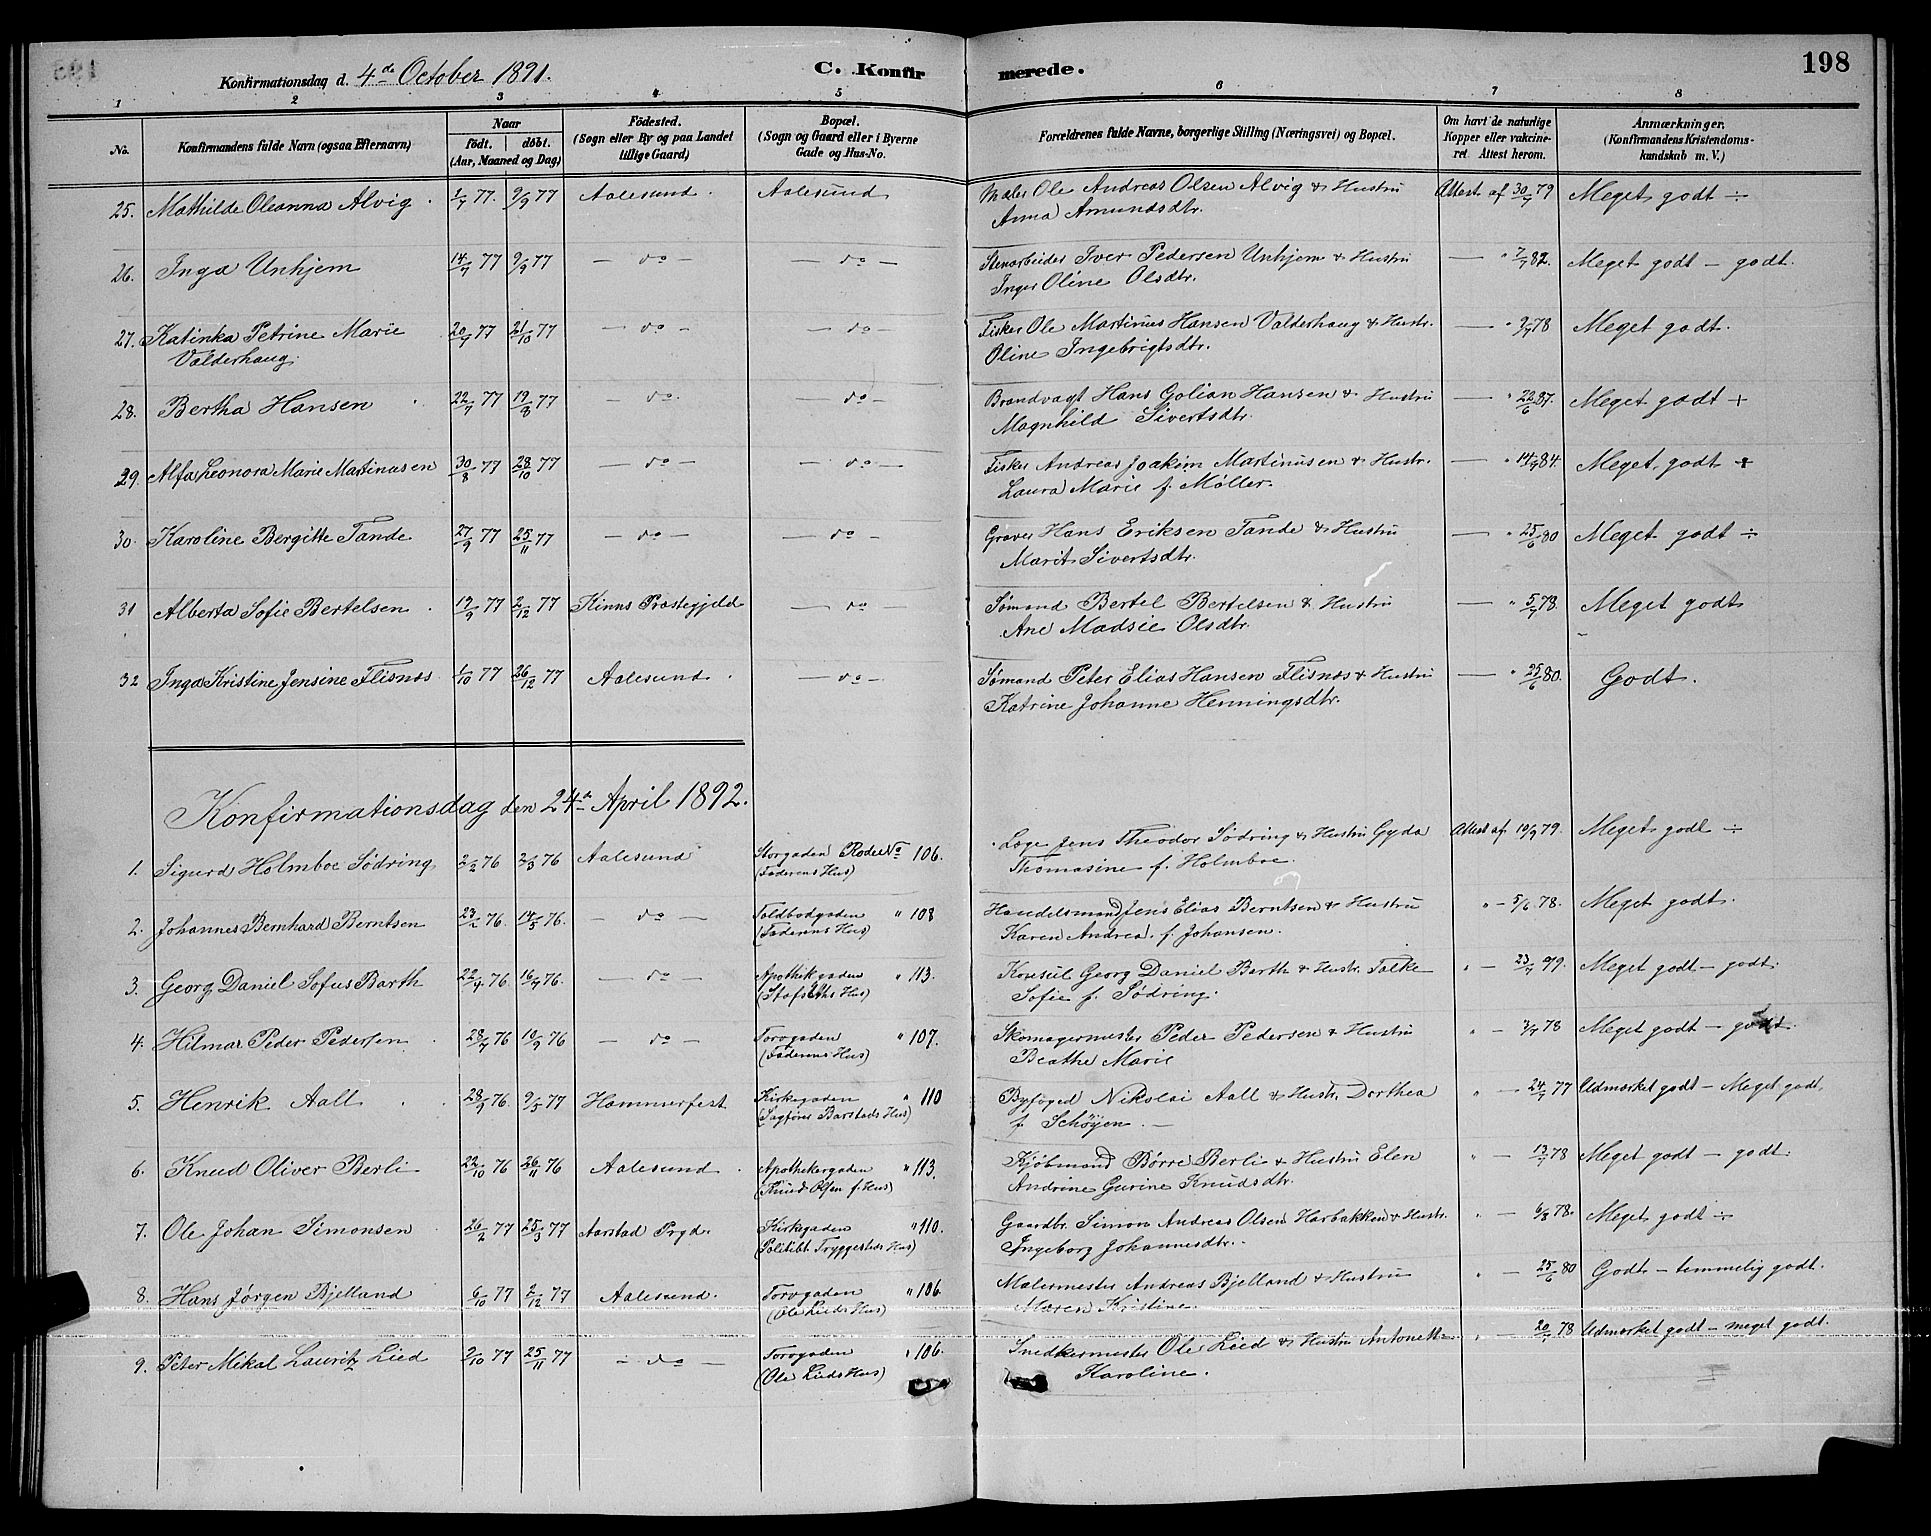 Konfirmationsdag d. 4de October 1891.
C. Konfirmerede.
198
1 2 3 4 5 6 7 8
No.
Konfirmandens fulde Navn (ogsaa Efternavn)
Naar
födt. döbt.
(Aar, Maaned og Dag)
Födested.
(Sogn eller By og paa Landet
tillige Gaard)
Bopæl.
(Sogn og Gaard eller i Byerne
Gade og Hus-No.
Forældrenes fulde Navne, borgerlige Stilling (Næringsvei) og Bopæl.
Om havt de naturlige
Kopper eller vakcine-
ret Attest herom.
Anmærkninger.
(Konfirmandens Kristendoms-
kundskab m. V.)
25. Mathilde Oleanna Alvig 1/7 77. 9/9 77 Aalesund. Aalesund Maler Ole Andreas Olsen Alvig & Hustru Attest af 30/7 79 Meget godt ÷
Anna Amundsdtr.
26. Inga Unhjem 14/7 77 9/9 77 — do — — do — Stenarbeider Iver Pedersen Unhjem & Hustru — " 7/7 82. Meget godt — godt.
Inger Oline Olsdtr.
27. Katinka Petrine Marie 20/7 77 21/10 77 — do — — do — Fisker Ole Martinus Hansen Valderhaug & Hustr. — " 9/7 78 Meget godt.
Valderhaug. Oline Ingebrigtsdtr.
28. Bertha Hansen 22/7 77 19/8 77 — do. — do — Brandvagt Hans Golian Hansen & Hustru — " 22/6 87. Meget godt +
Magnhild Sivertsdtr.
29. Alfa Leonora Marie Martinusen 30/8 77 28/10 77 — do — — do — Fisker Andreas Joakim Martinusen & Hustr. — " 14/9 84. Meget godt +
Laura Marie f. Møller.
30. Karoline Bergitte Tande 27/9 77 25/11 77 — do — — do — Graver Hans Eriksen Tande & Hustru — " 25/6 80 Meget godt ÷
Marit Sivertsdtr.
31 Alberta Sofie Bertelsen 19/9 77 2/12 77 Kinns Præstegjeld — do Sømand Bertel Bertelsen & Hustru — " 5/7 78. Meget godt
Ane Madsie Olsdtr.
32 Inga Kristine Jensine Flisnæs 1/10 77 26/12 77 Aalesund. — do — Sømand Peter Elias Hansen Flisnæs & Hustru — " 25/6 80. Godt.
Katrine Johanne Henningsdtr.
Konfirmationsdag den 24de April 1892.
1. Sigurd Holmboe Sødring 2/2 76 2/3 76 Aalesund Storgaden Rode No 106. Læge Jens Theodor Sødring & Hustru Gyda Attest af 10/9 79. Meget godt ÷
(Faderens Hus) Thomasine f. Holmboe.
2. Johannes Bernhard Berntsen 23/2 76. 14/5 76. — do — Toldbodgaden " 108 Handelsmand Jens Elias Berntsen & Hustru " — 5/6 78. Meget godt.
(Faderens Hus) Karen Andrea. f. Johansen.
3. Georg Daniel Sofus Barth 22/4 76. 16/7 76. — do — Apothikgaden " 113. Konsul Georg Daniel Barth & Hustr. Falke " — 23/7 99. Meget godt — godt.
(Stafseths Hus) Sofie f. Sødring.
4. Hilmar Peder Pedersen 28/7 76 10/9 76 — do — Torvgaden " 107. Skomagermester Peder Pedersen & Hustru " — 3/7 78 Meget godt — godt.
(Faderens Hus) Beathe Marie
5. Henrik Aall 28/9 76. 9/5 77 Hammerfest Kirkegaden " 110 Byfoged Nikolai Aall & Hustr. Dorthea " — 24/7 77 Udmærket godt — Meget godt.
(Sagfører Barstads Hus) f. Schøyen. —
6. Knud Oliver Berli 22/10 76 26/11 76 Aalesund Apothekergaden " 113. Kjøbmand Børre Berli & Hustru Elen " — 13/7 78 Meget godt — godt.
(Knud Olsen f. Hus) Andrine Gurine Knudsdtr.
7. Ole Johan Simonsen 26/2 77 25/3 77 Aarstad Prgd. Kirkegaden " 110. Gaardbr. Simon Andreas Olsen Harbakken & Hustr. " — 6/8 78. Meget godt ÷
(Politibt. Tryggestads Hus) Ingeborg Johannesdtr.
8. Hans Jørgen Bjelland 6/10 77 2/12 77 Aalesund. Torvgaden " 106. Malermester Andreas Bjelland & Hustru " — 25/6 80 Godt — temmelig godt.
(Ole Lieds Hus) Maren Kristine.
9. Peter Mikal Lauritz Lied 2/10 77 25/11 77 — do — Torvgaden " 106. Snedkermester Ole Lied & Hustru Antonett " — 20/7 78 Udmærket godt — meget godt.
(Ole Lieds Hus) Karoline.